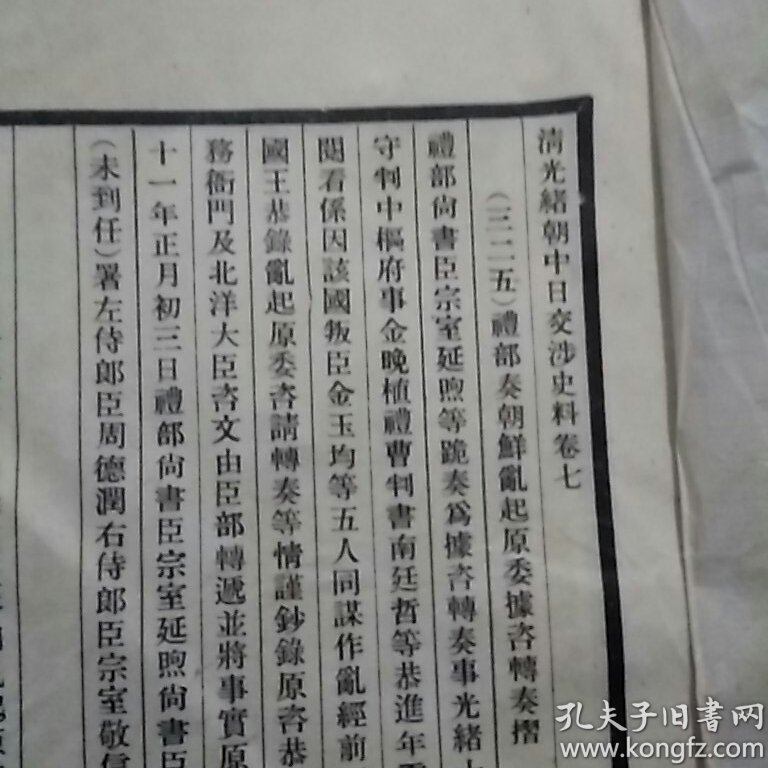 清光緒朝中日交涉史料卷七
(三二五)禮部奏朝鮮亂起原委據咨轉奏摺
禮部尙書臣宗室延煦等跪奏爲據咨轉奏事光緒十
守判中樞府事金晚植禮曹判書南廷哲等恭進年
閱看係因該國叛臣金玉均等五人同謀作亂經前
國王恭錄亂起原委咨請轉奏等情謹鈔錄原咨恭
務衙門及北洋大臣咨文由臣部轉遞並將事實原
十一年正月初三日禮部尙書臣宗室延煦尙書臣
(未到任)署左侍郎臣周德潤右侍郎臣宗室敬信
孔夫子旧书网
www.kongfz.com